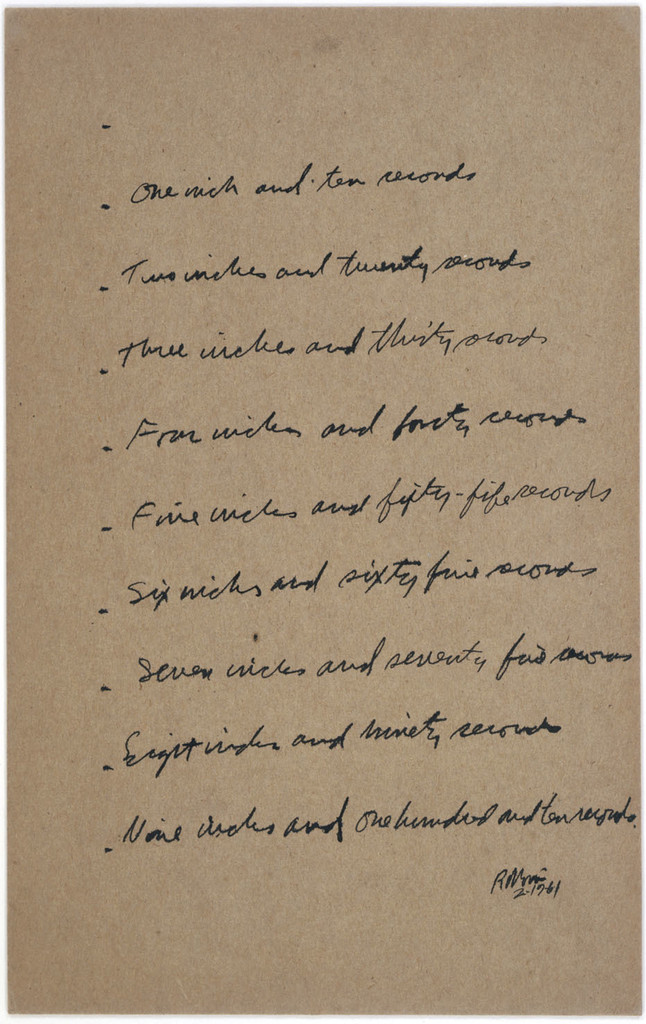 One inch and ten seconds
Two inches and twenty seconds
Three inches and thirty seconds
Four inches and forty seconds
Five inches and fifty-fife seconds
Six inches and sixty five seconds
Seven inches and seventy five seconds
Eight inches and ninety seconds
Nine inches and one hundred and ten seconds.
RMorris
2-1961